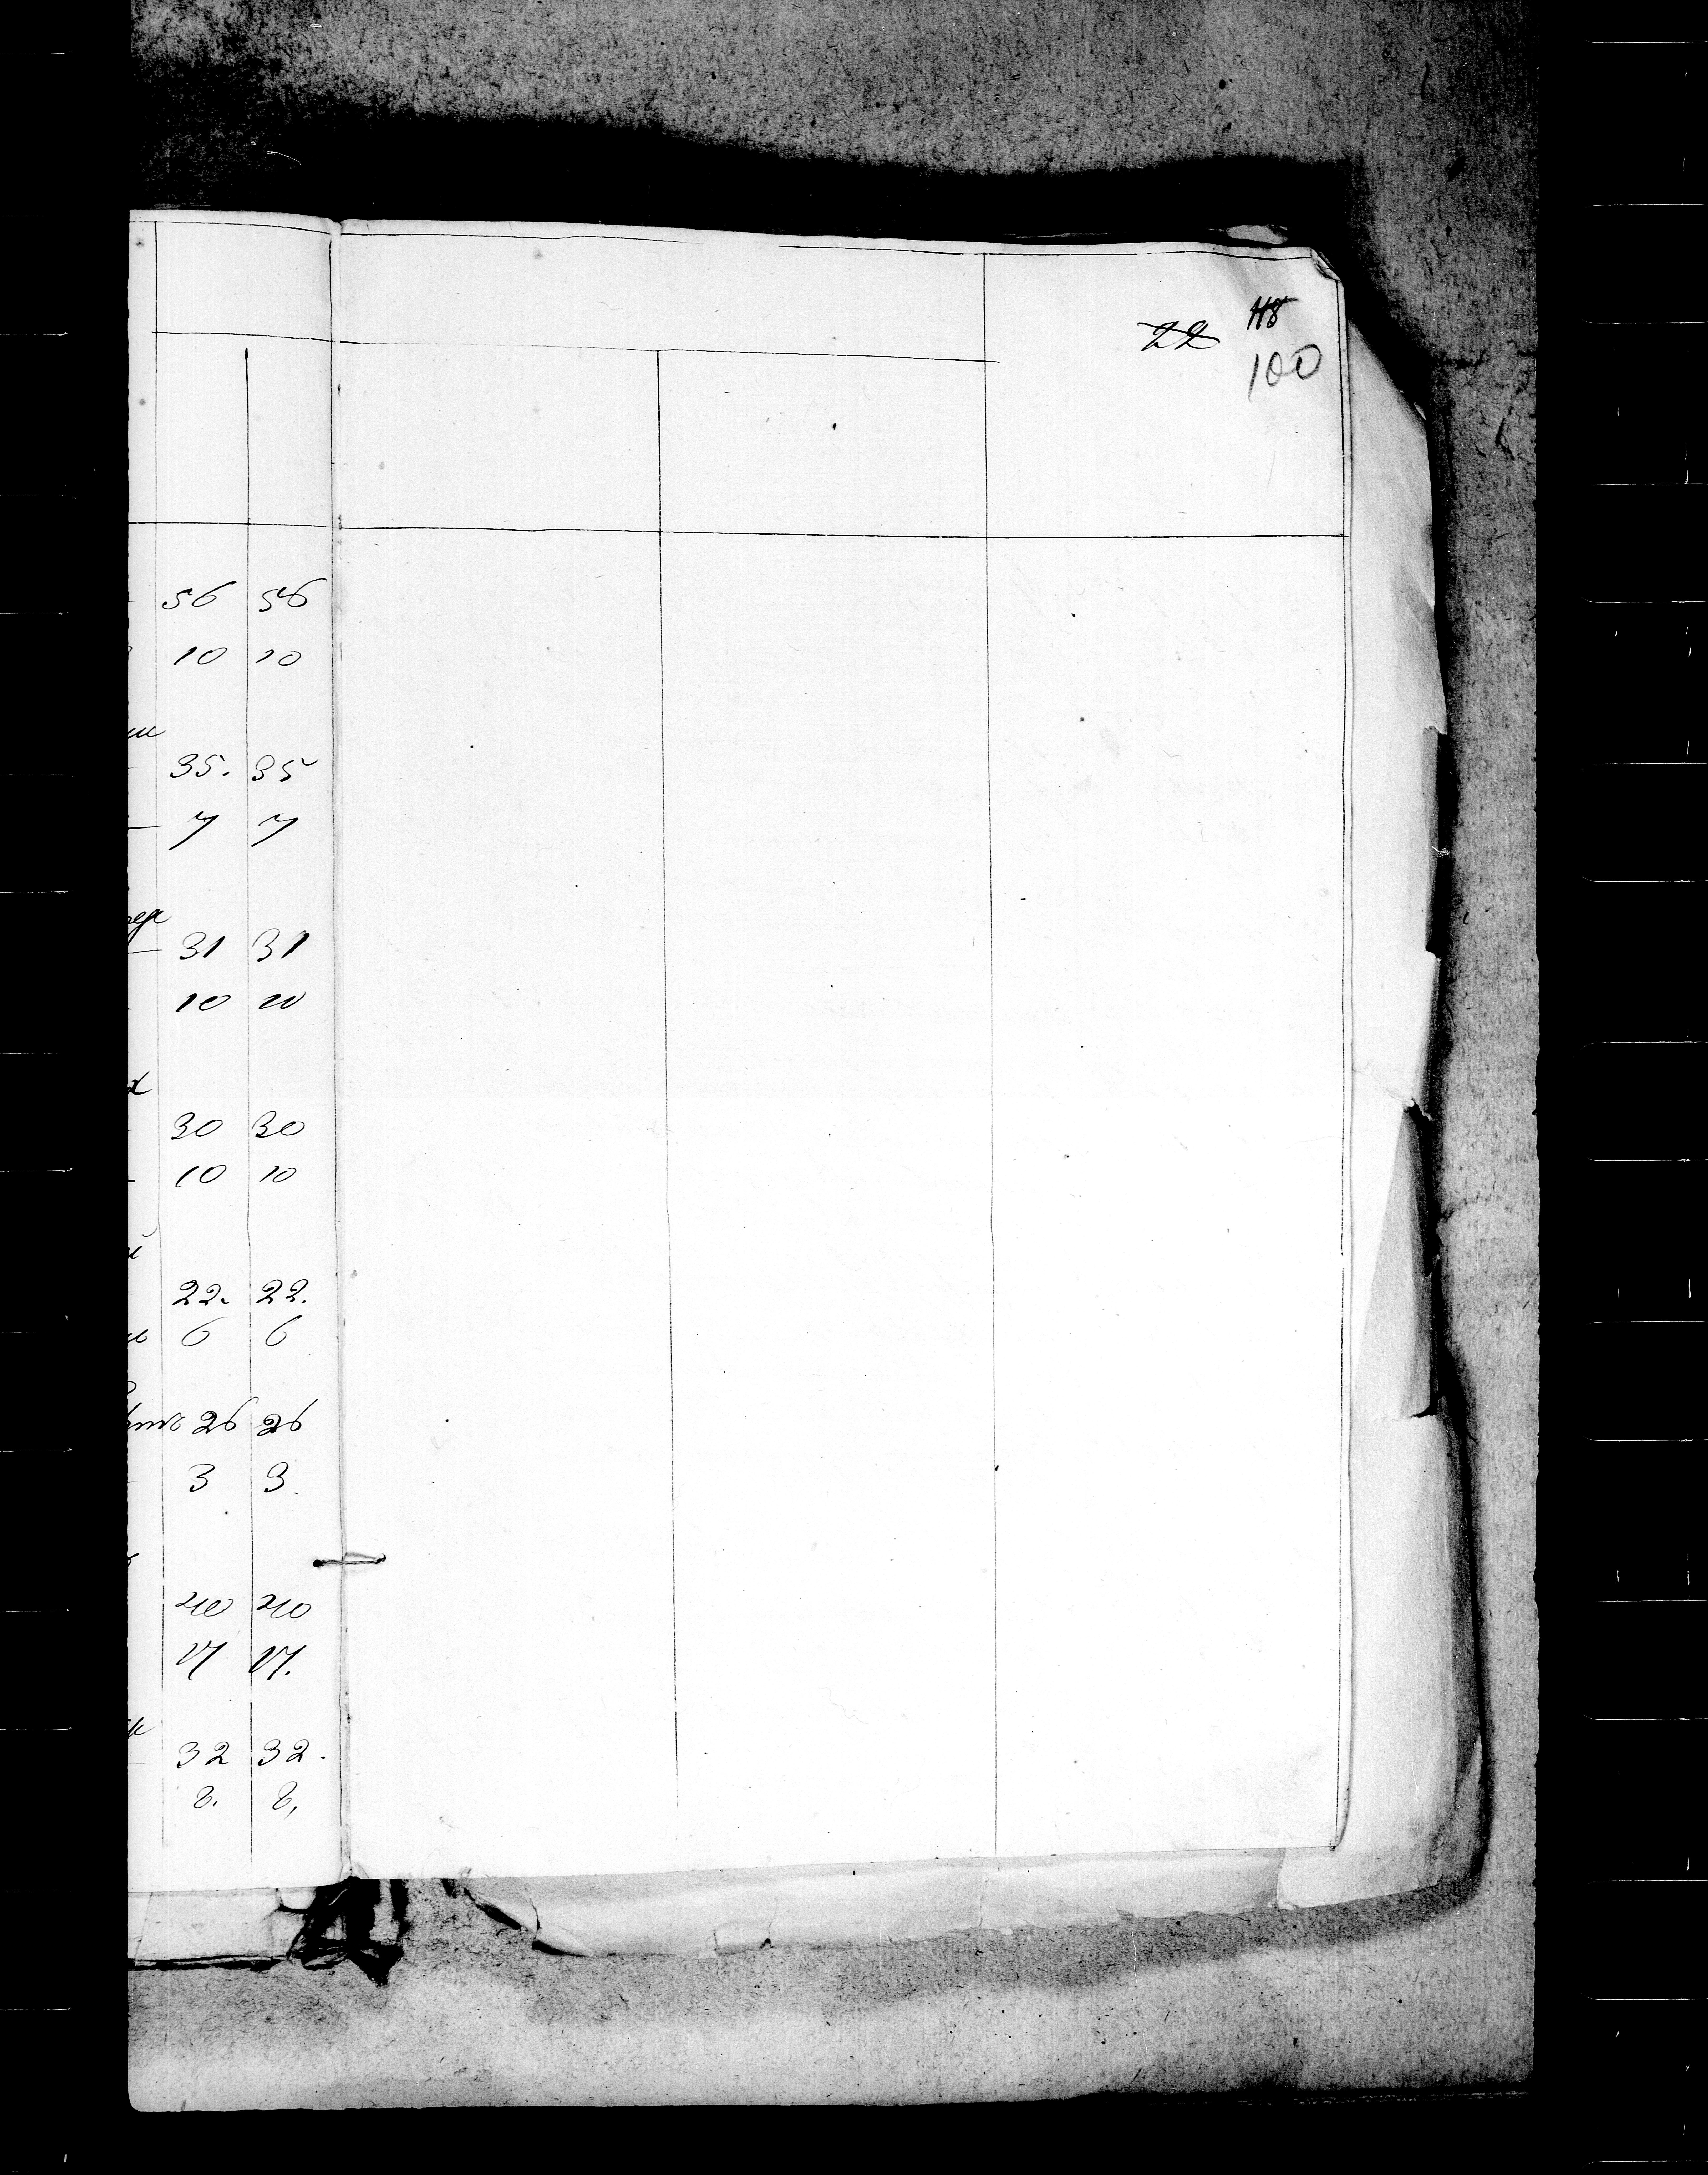 22 118
100
56 56
10 10
35. 35
7 7
31 31
10 10
30 30
10 10
22. 22.
6 6
26 26
3 3.
40 40
17 17.
32 32.
8. 8,